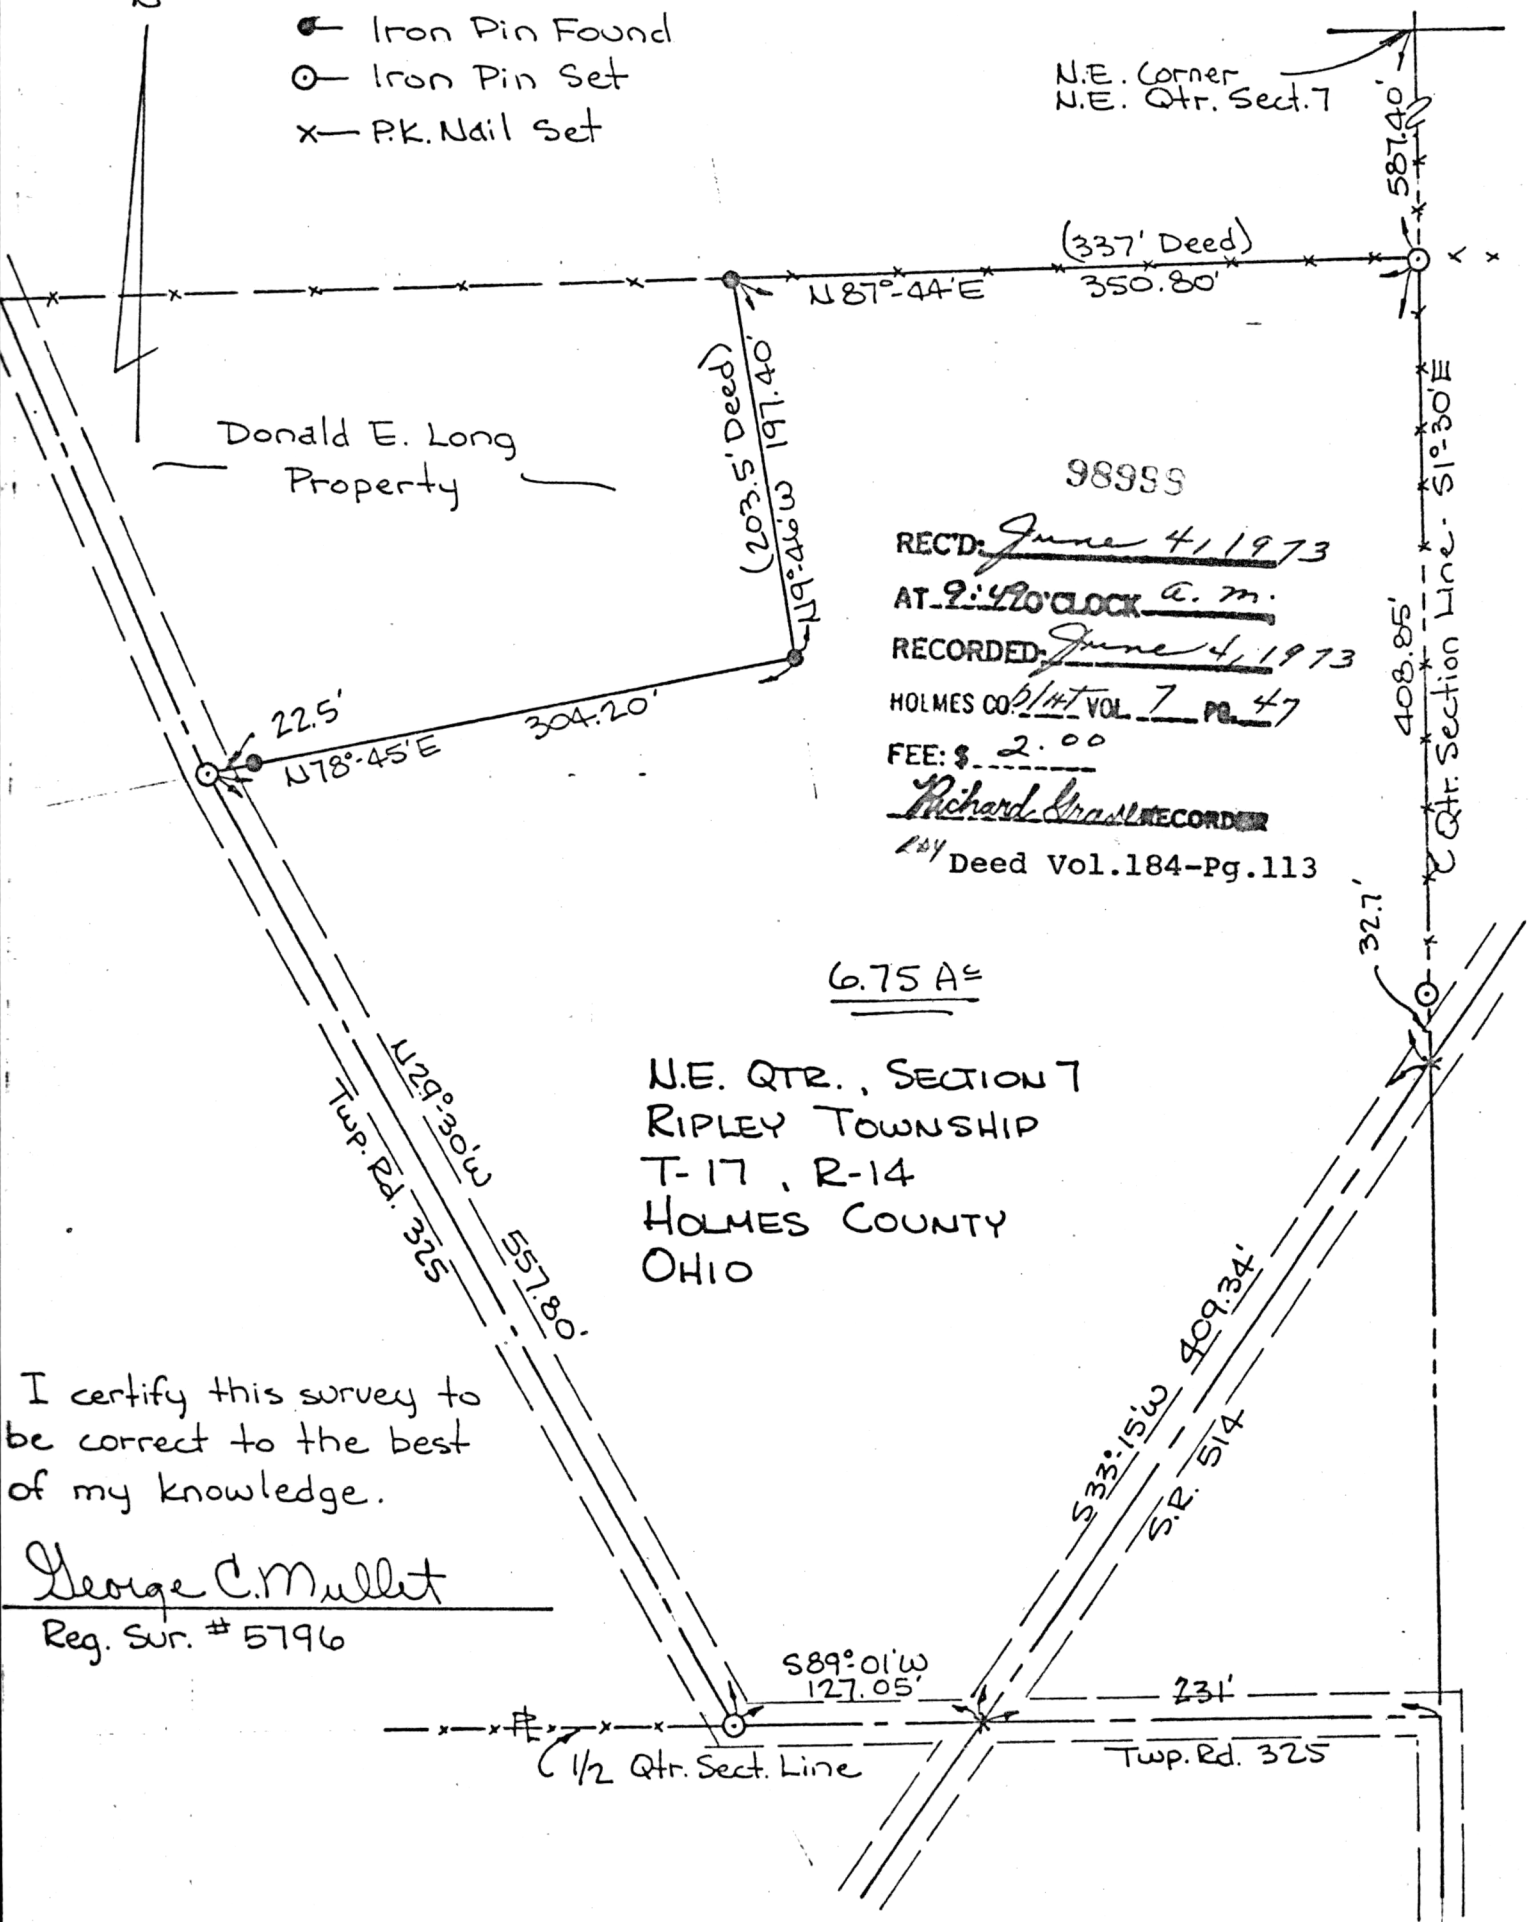 N
Iron Pin Found
Iron Pin Set
x— P.K. Nail Set
N.E. Corner
N.E. Qtr. Sect. 7
587.40'
(337' Deed)
N87°-44'E 350.80'
(203.5' Deed)
N9°-46'W 197.40'
Donald E. Long
Property
98955
REC'D: June 4, 1973
AT 9:49 O'CLOCK a. m.
RECORDED: June 4, 1973
HOLMES CO plat VOL 7 PG. 47
FEE: $ 2.00
Richard RECORDER
Deed Vol.184-Pg.113
408.85'
Qtr. Section Line - S1°-30'E
22.5'
N78°-45'E 304.20'
32.7'
6.75 Ac
N.E. QTR., SECTION 7
RIPLEY TOWNSHIP
T-17, R-14
HOLMES COUNTY
OHIO
N29°-30'W 557.80'
Twp. Rd. 325
S33°-15'W 409.34'
S.R. 514
I certify this survey to
be correct to the best
of my knowledge.
George C. Mullet
Reg. Sur. # 5796
S89°-01'W
127.05'
231'
PL
1/2 Qtr. Sect. Line
Twp. Rd. 325